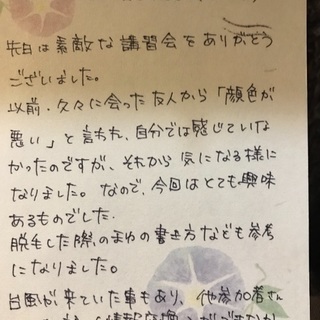 先日は素敵な講習会をありがとう
ございました。
以前、久々に会った友人から「顔色が
悪い」と言われ、自分では感じていな
かったのですが、それから気になる様に
なりました。なので、今回はとても興味
あるものでした.
脱毛した際のまゆの書き方なども参考
になりました。
台風が来ていた事もあり、他参加者さん
情報交換